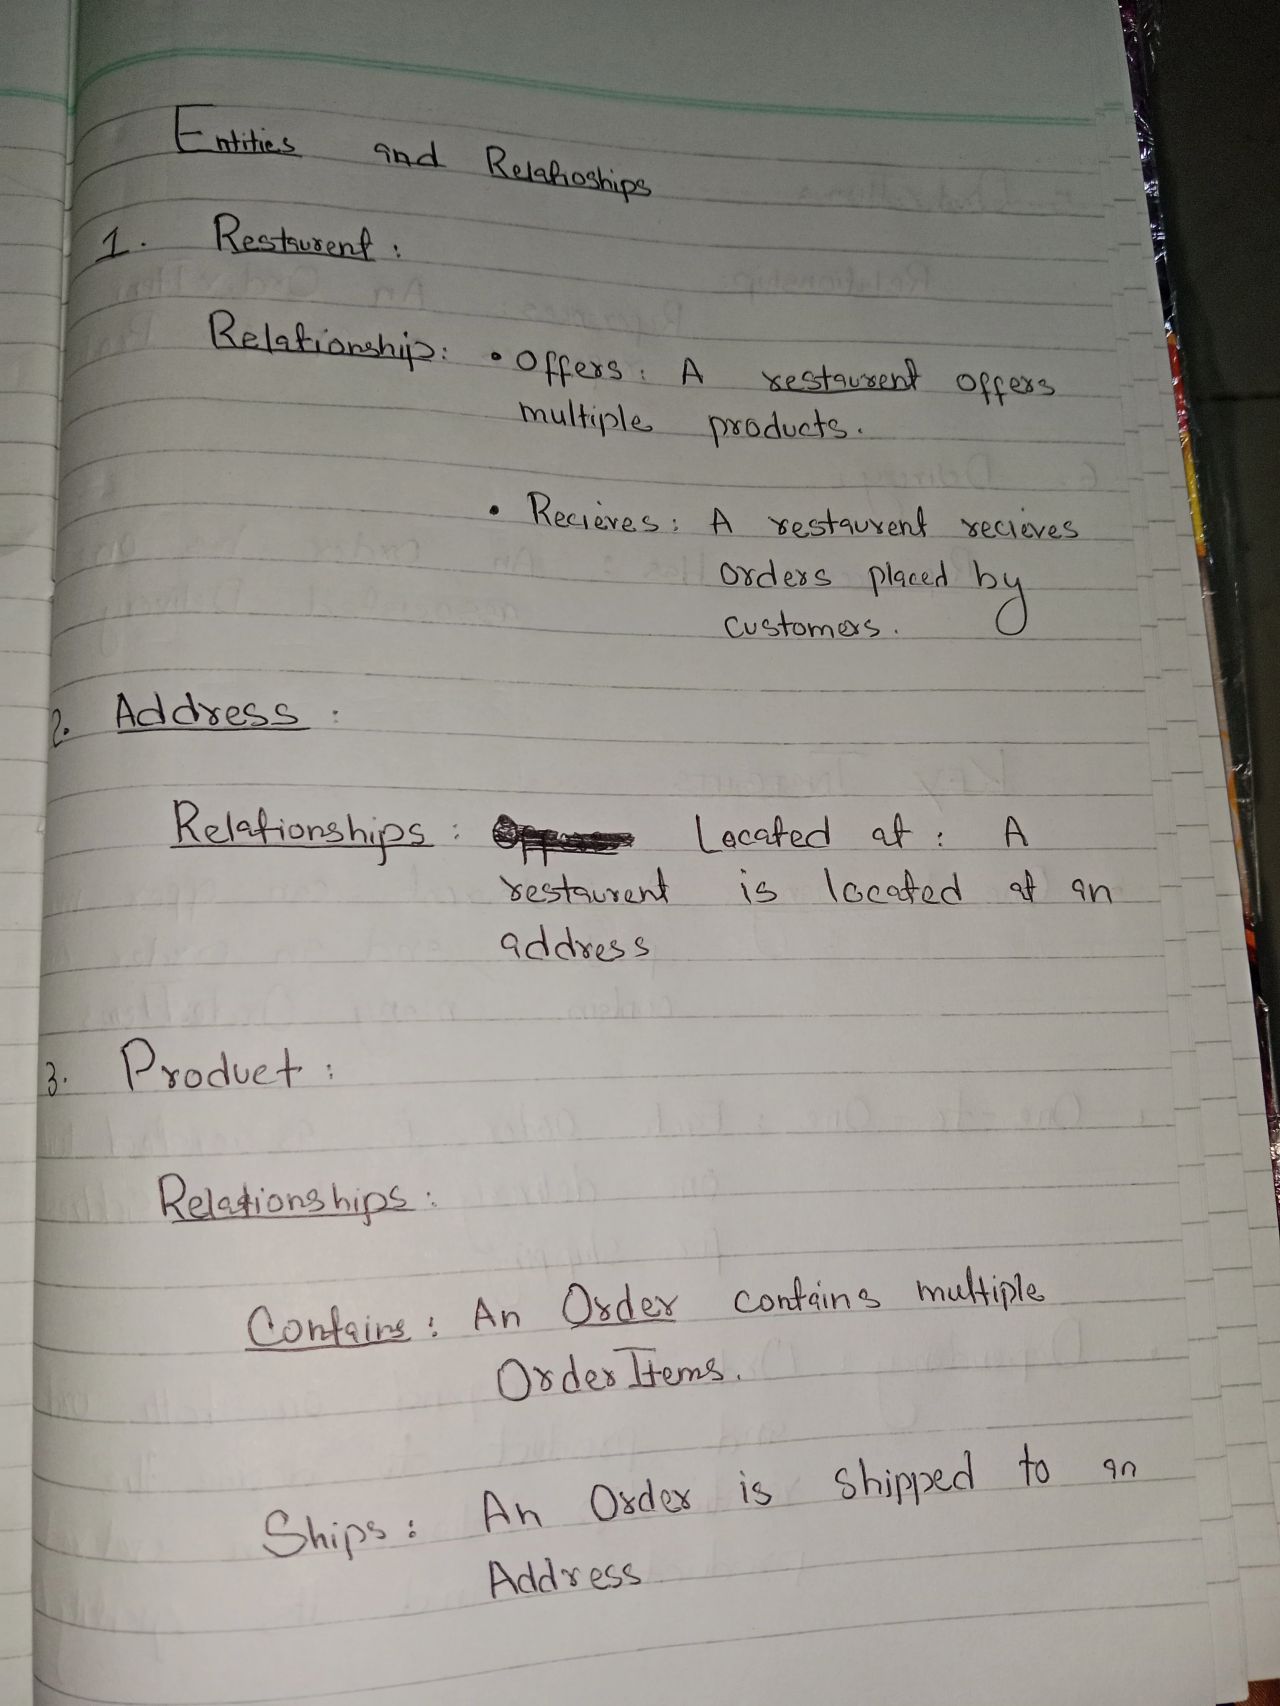 Entities and Relatioships
1. Restaurent :
Relationship: • Offers : A restaurent offers
multiple products.
• Recieves : A restaurent recieves
orders placed by
customers.
2. Address :
Relationships : Located at : A
restaurent is located at an
address
3. Product :
Relationships :
Contains : An Order contains multiple
OrderItems.
Ships : An Order is shipped to an
Address